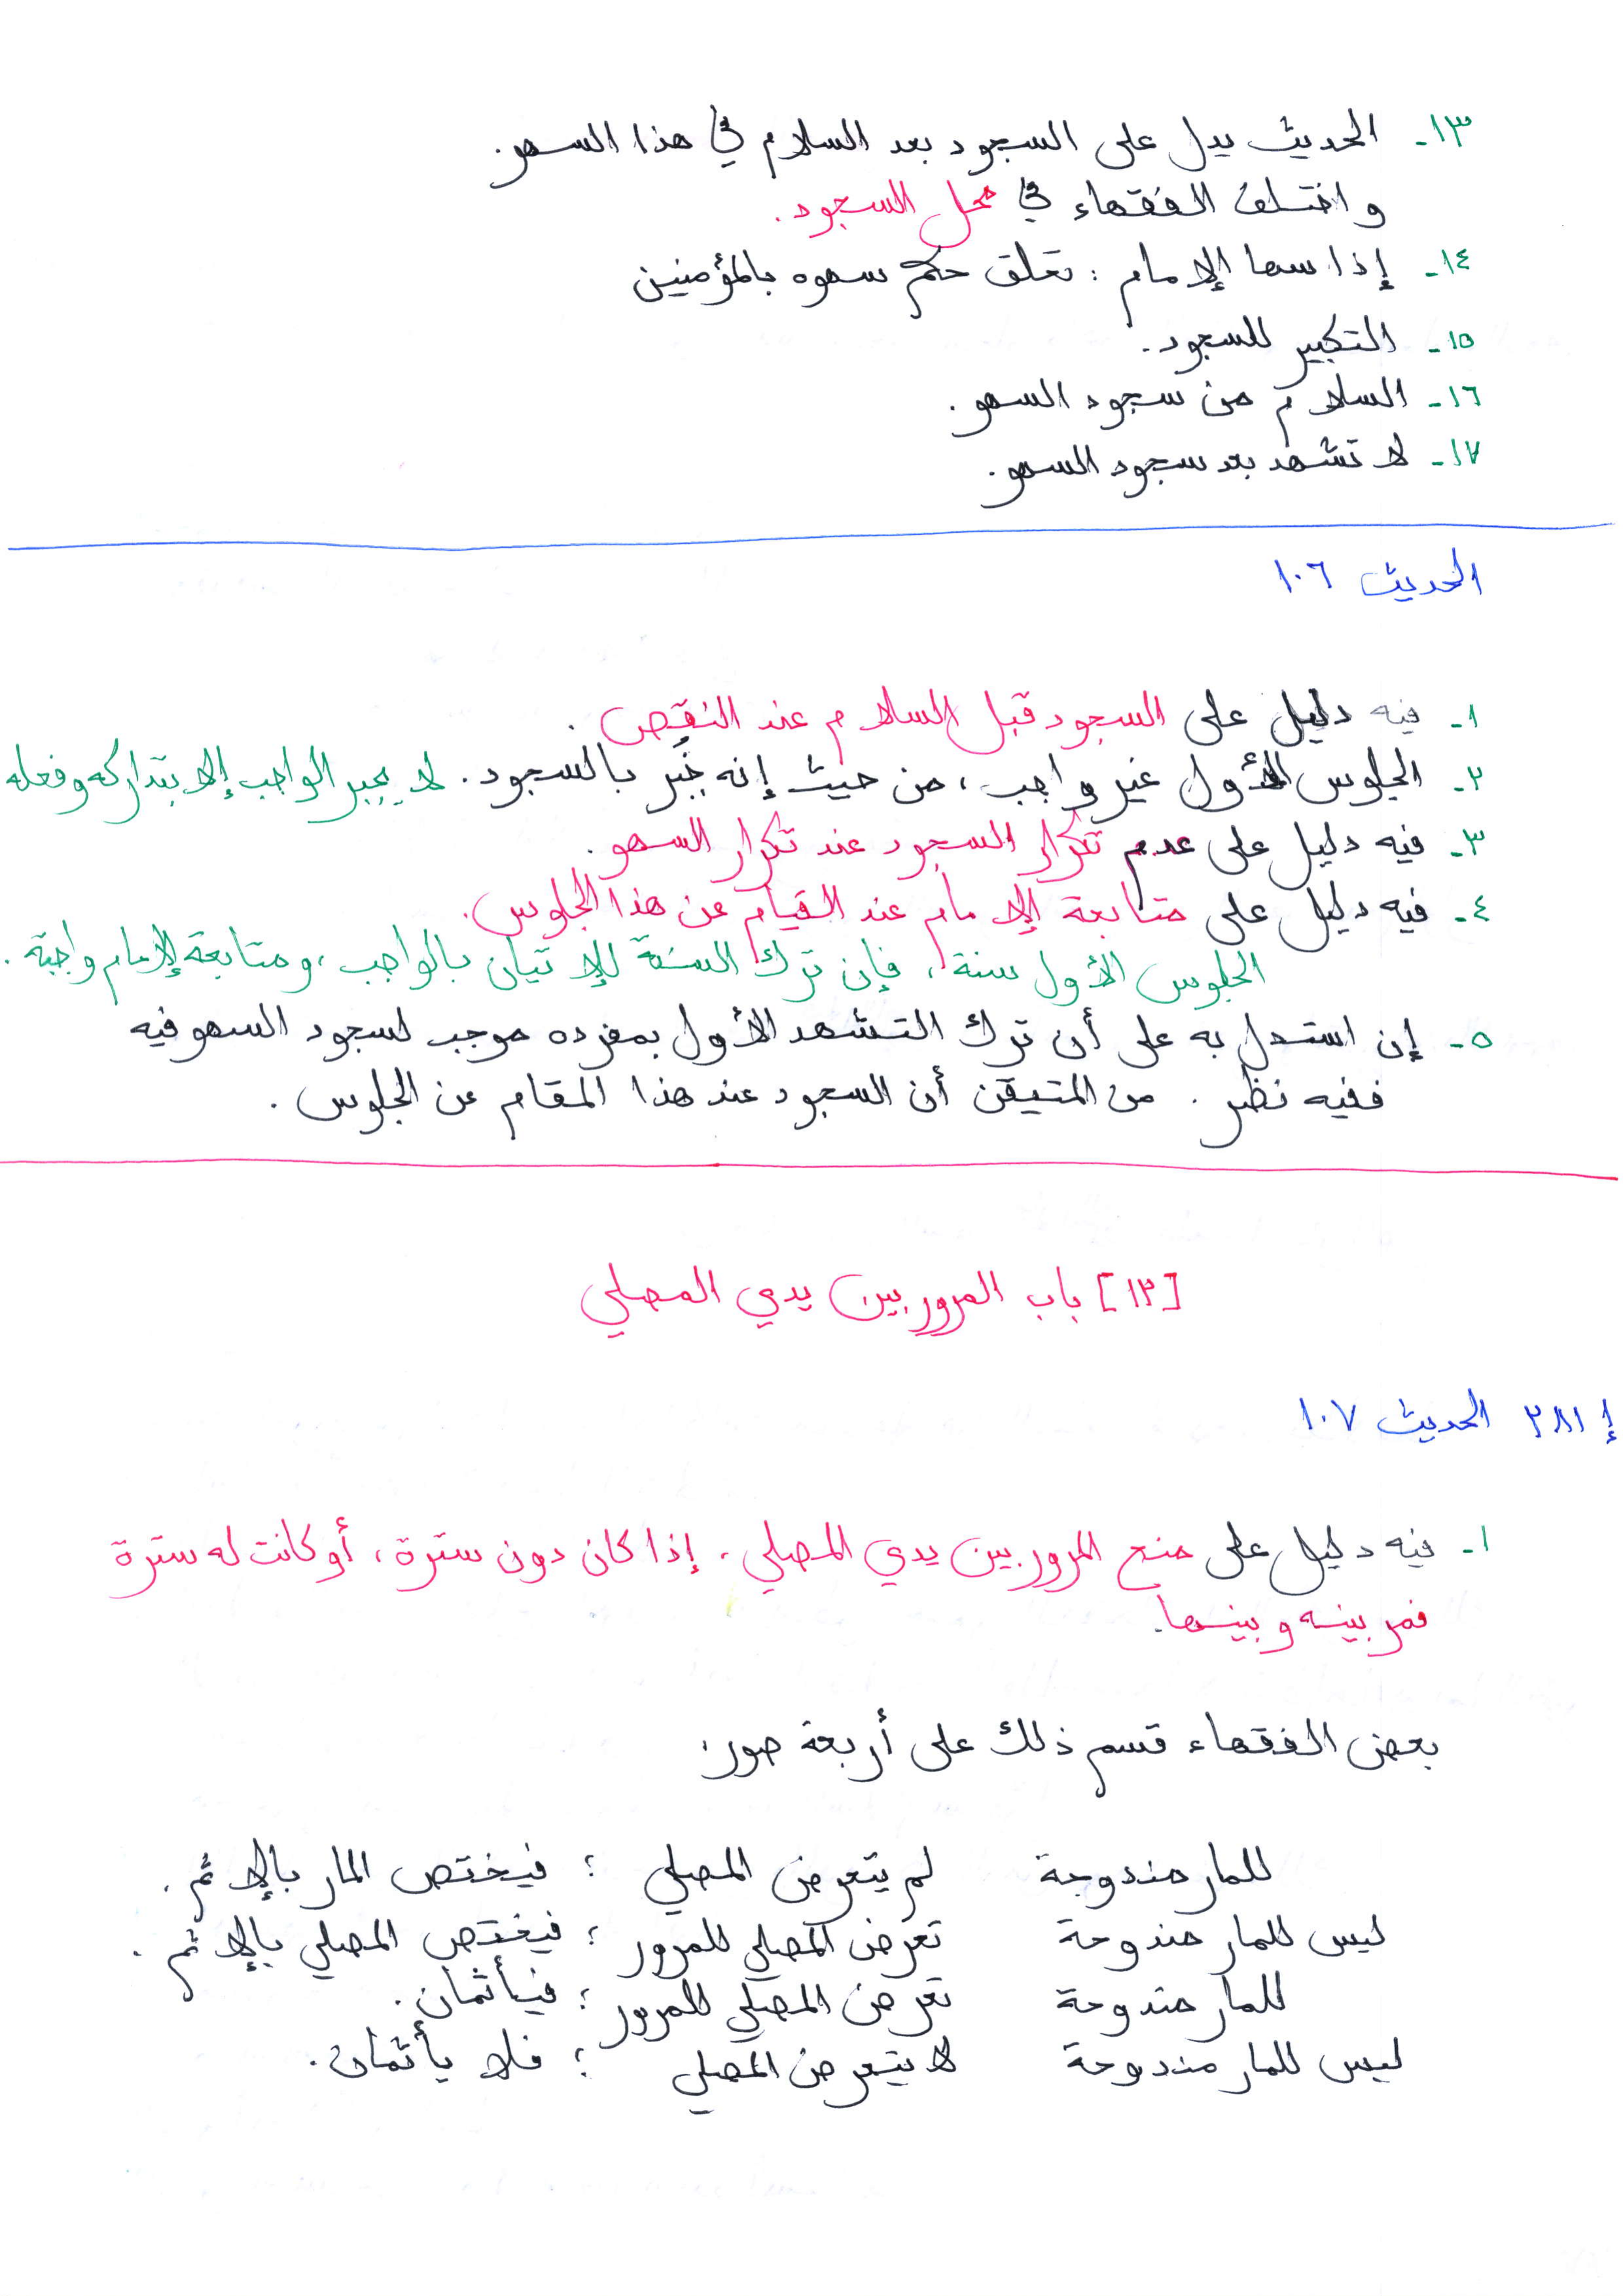 ١٣- الحديث يدل على السجود بعد السلام في هذا السهو.
واختلف الفقهاء في محل السجود.
١٤- إذا سها الإمام : تعلق حكم سهوه بالمؤمنين
١٥- التكبير للسجود.
١٦- السلام من سجود السهو.
١٧- لا تشهد بعد سجود السهو.
الحديث ١٠٦
١- فيه دليل على السجود قبل السلام عند النقص.
٢- الجلوس الأول غير واجب، من حيث إنه جُبِر بالسجود. لا يجبر الواجب إلا بتداركه وفعله
٣- فيه دليل على عدم تكرار السجود عند تكرار السهو.
٤- فيه دليل على متابعة الإمام عند القيام عن هذا الجلوس.
الجلوس الأول سنة، فإن ترك السنة للإتيان بالواجب، ومتابعة الإمام واجبة.
٥- إن استدل به على أن ترك التشهد الأول بمفرده موجب لسجود السهو فيه
ففيه نظر. من المتيقن أن السجود عند هذا المقام عن الجلوس.
[١٣] باب المرور بين يدي المصلي
الحديث ١٠٧
١- فيه دليل على منع المرور بين يدي المصلي، إذا كان دون سترة، أو كانت له سترة
فمر بينه وبينها.
بعض الفقهاء قسم ذلك على أربعة صور:
للمار مندوحة لم يتعرض المصلي ؛ فيختص المار بالإثم.
ليس للمار مندوحة تعرض المصلي للمرور ؛ فيختص المصلي بالإثم.
للمار مندوحة تعرض المصلي للمرور ؛ فيأثمان.
ليس للمار مندوحة لا يتعرض المصلي ؛ فلا يأثمان.